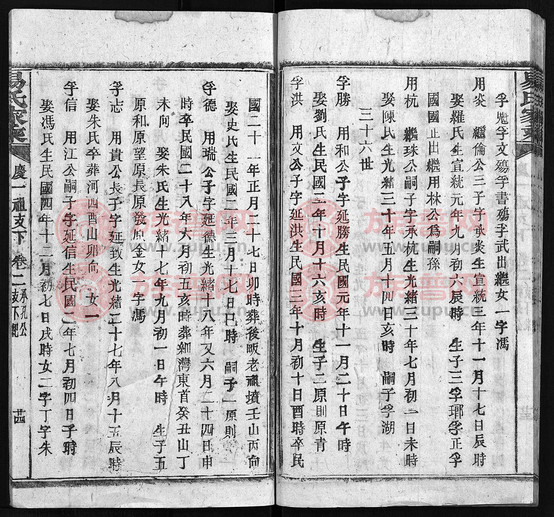 孚魁孚文殤孚書殤孚武出繼女一字馮
用炎 繼倫公三子字承炎生宣統三年十一月十七日辰時
娶羅氏生宣統元年九月初六辰時 生子三孚瑨孚正孚
國國正出繼用林公爲嗣孫
用杭 繼珠公嗣子字承杭生光緒三十年七月初一日未時
娶陳氏生光緒三十年五月十四時 嗣子孚湖
三十六世
孚勝 用和公子字延勝生民國元年十一月二十日午時
娶劉氏生民國二年十月十六亥時 生子二原則原青
孚洪 用文公子字延洪生民國二年十月初十日酉時卒民
國二十一年正月二十七日卯時葬後畈老禮墳壬山丙向
娶史氏生民國二年三月十七日巳時 嗣子一原則
孚德 用瑞公子字延德生光緒十八年又六月二十四日申
時卒民國二十八年六月初五亥時葬細灣東首癸丑山丁
未向 娶朱氏生光緒十七年九月初一日午時 生子五
原和原望原長原發原金女一字馮
孚志 用貴公長子字延致生光緒二十七年八月十五辰時
娶朱氏卒葬河西酉山卯向 女一
孚信 用江公嗣子字延信生民國二年七月初四日子時
娶馮氏生民國四年十二月初七戌時女二字丁字朱
易氏家乘
慶一祖支下
卷二